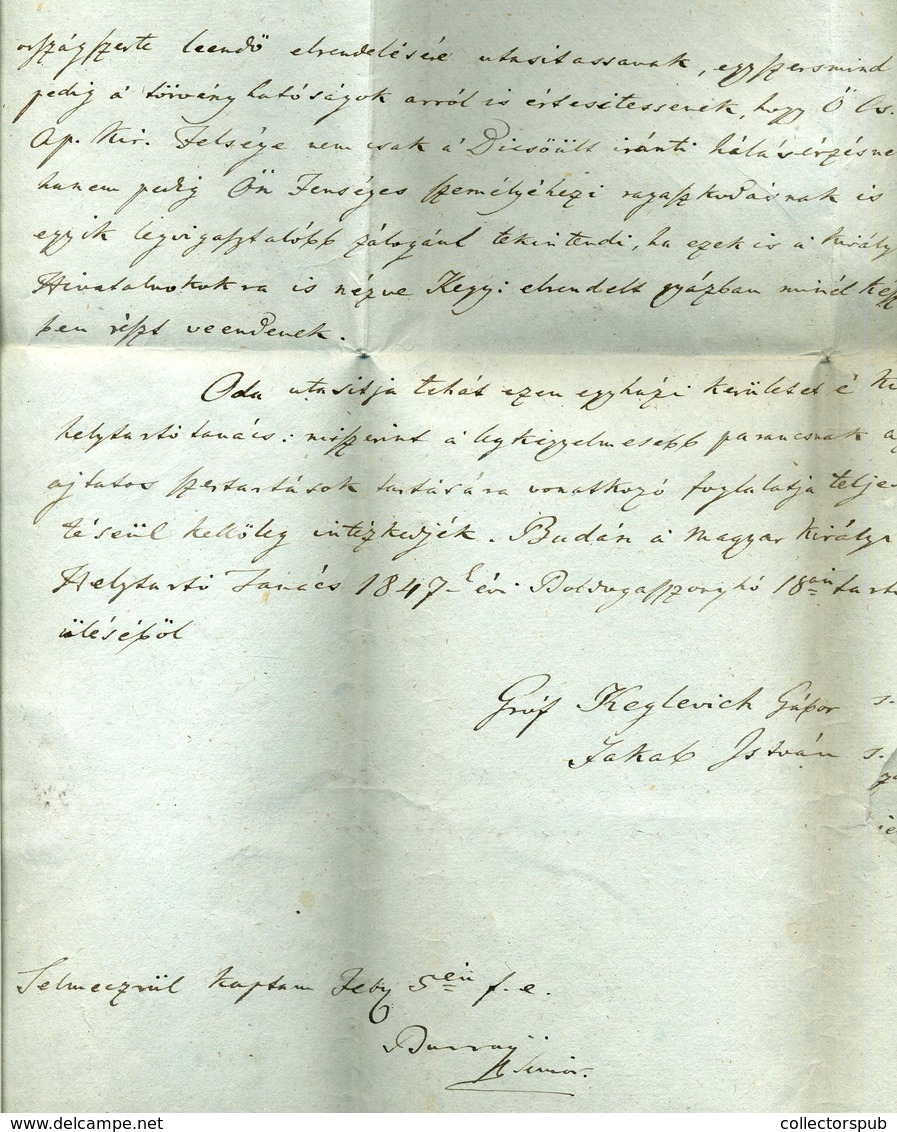 országszerte leendő elrendelésére utasitassanak, egyszersmind
pedig a' törvényhatóságok arról is értesitessenek, hogy Ő Cs.
Ap. Kir. Felsége nem csak a' Dicsőült iránti háláérzésne
hanem pedig Ön Fenséges személyéhezi ragaszkodásnak is
egyik legvigasztalóbb zálogául tekintendi, ha ezek is a' Király
Hivatalnokokra is nézve Kegy: elrendelt gyászban minél
ben részt veendenek.
Oda utasitja tehát ezen egyházi kerületet é
helytartó tanács: miszerint a' legkegyelmesebb parancsnak a
ájtatos szertartások tartására vonatkozó foglalatja telje
téseül kellőleg intézkedjék. Budán a' Magyar Királyi
Helytartó Tanács 1847 évi Boldogasszonyhó 18án tart
üléséből
Gróf Keglevich Gábor s.
Jakab István s.
Selmeczrül kaptam Feby 5én f. e.
Senior.
collectorspub